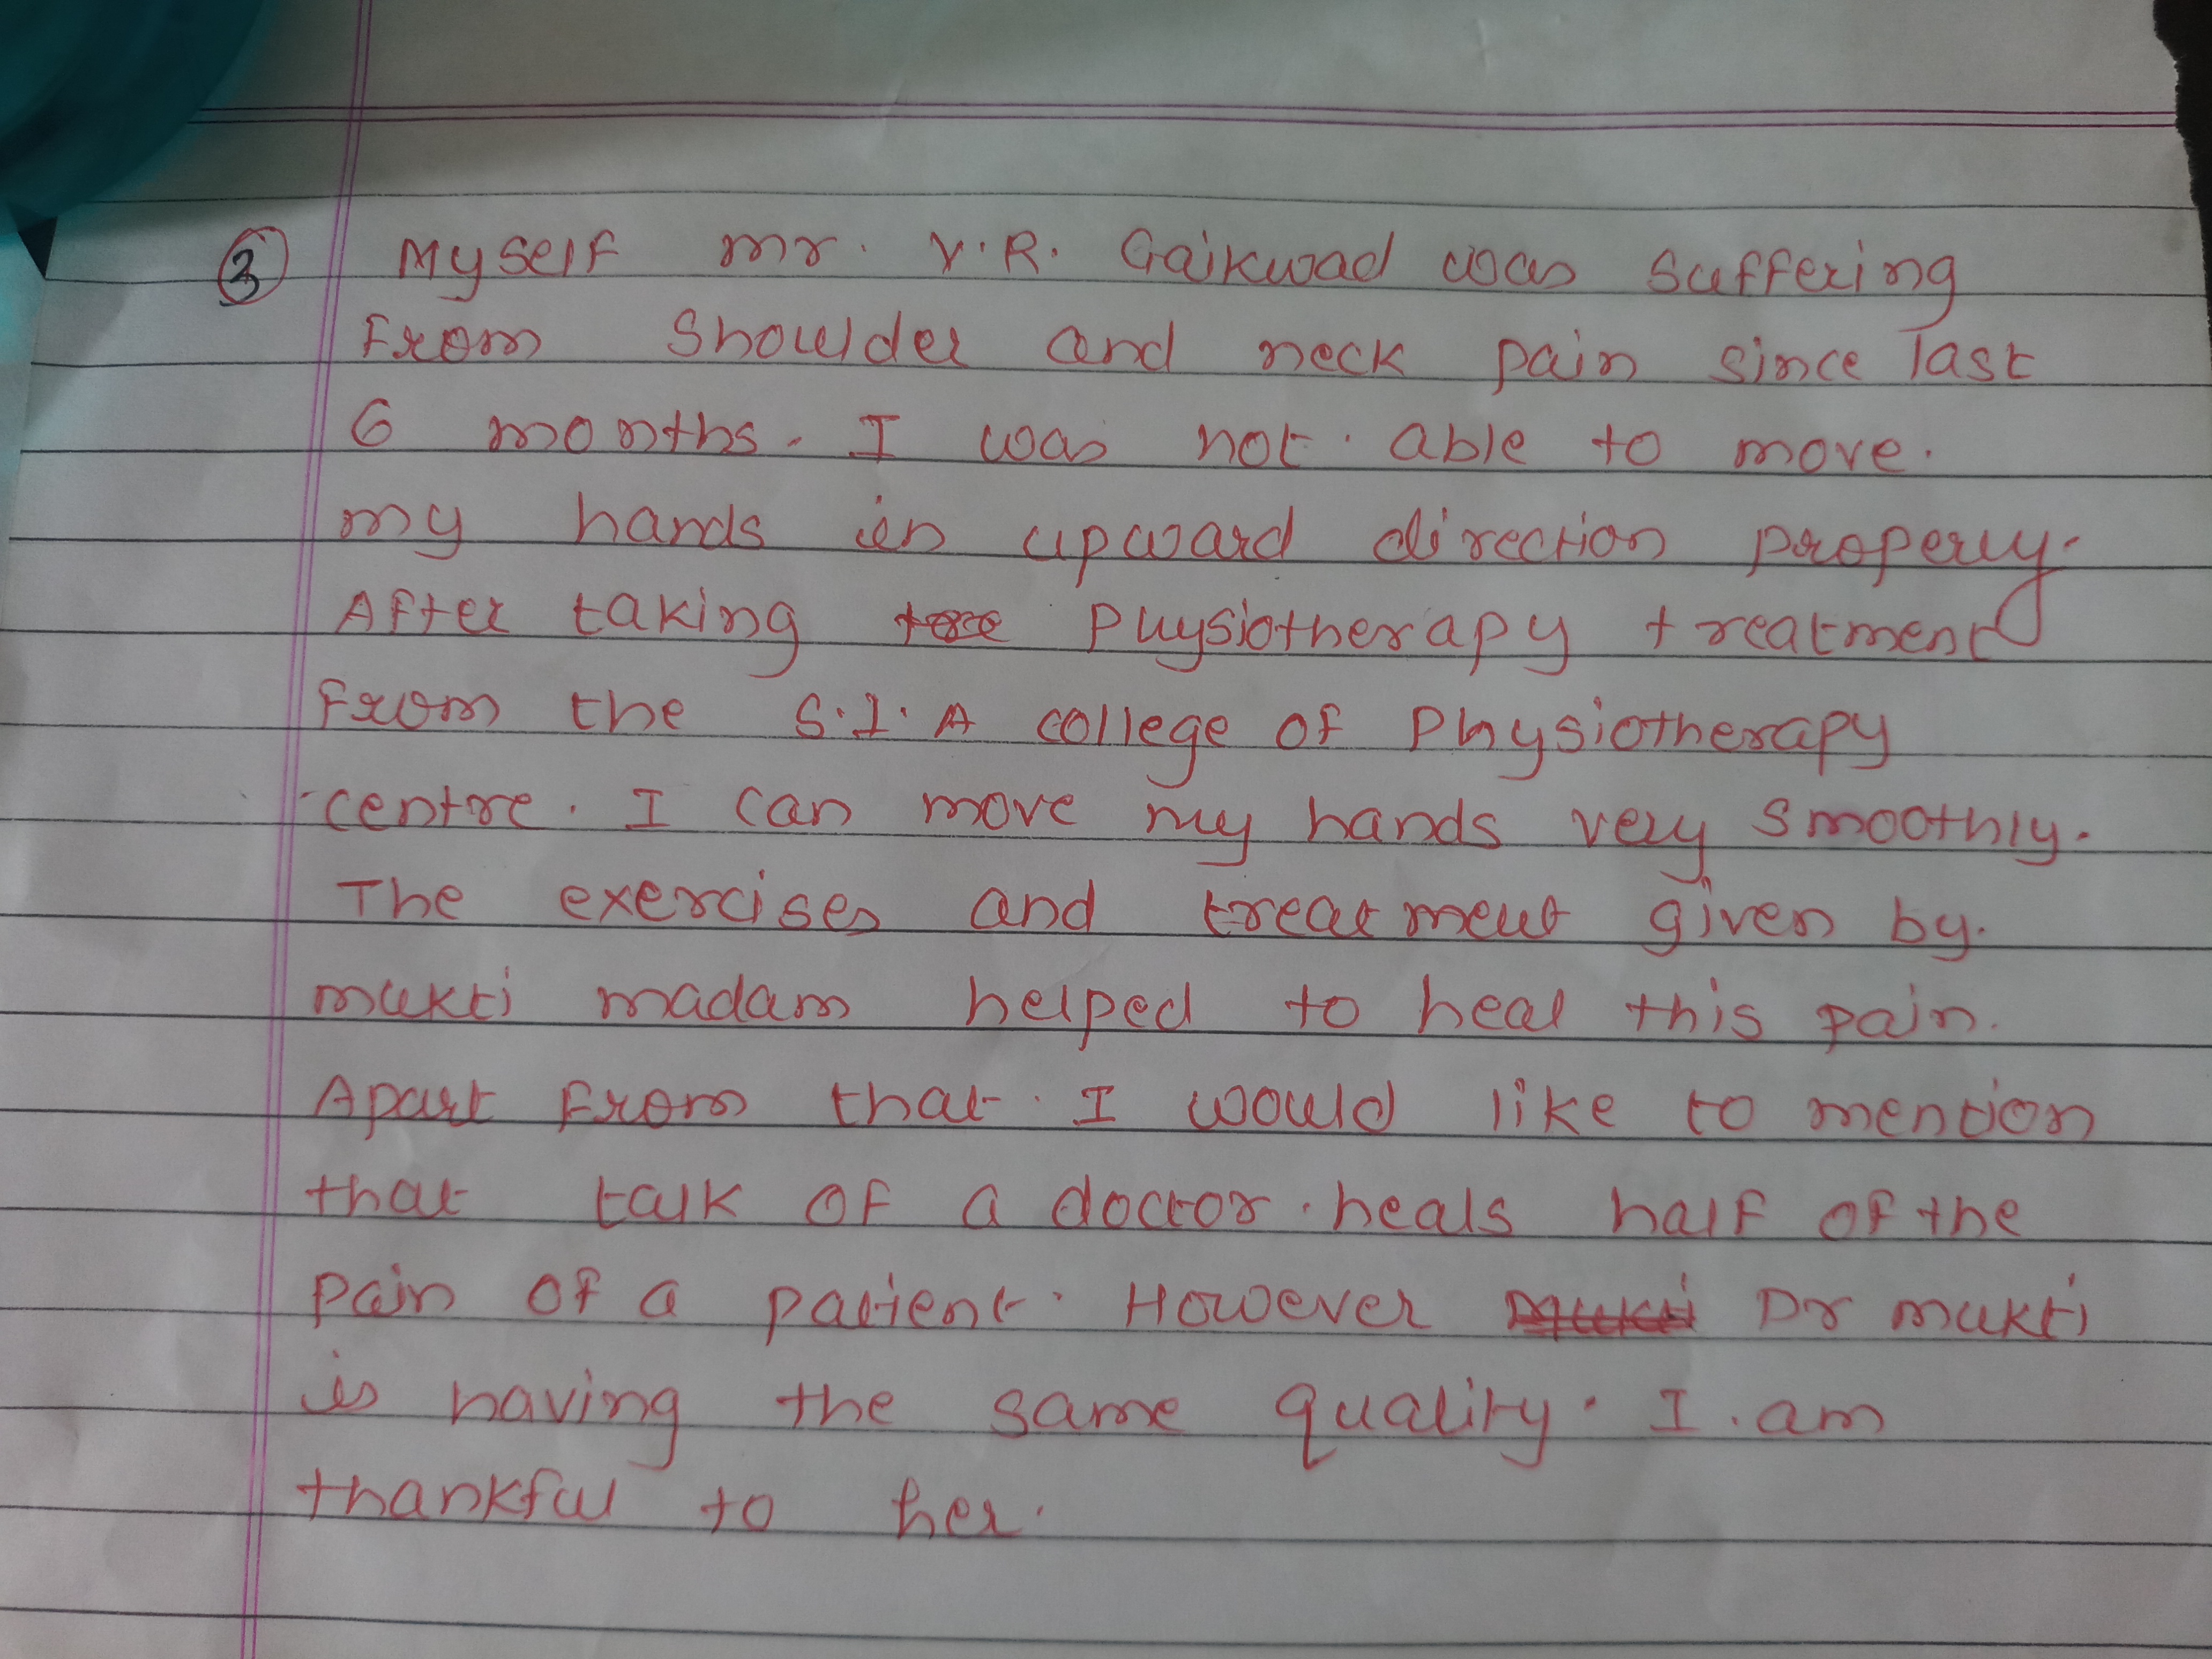 3 Myself mr. V.R. Gaikwad was suffering
from shoulder and neck pain since last
6 months. I was not able to move.
my hands in upward direction properly.
After taking physiotherapy treatment
from the S.I.A college of Physiotherapy
centre. I can move my hands very smoothly.
The exercises and treatment given by.
mukti madam helped to heal this pain.
Apart from that. I would like to mention
that talk of a doctor. heals half of the
pain of a patient. However Dr mukti
is having the same quality. I. am
thankful to her.